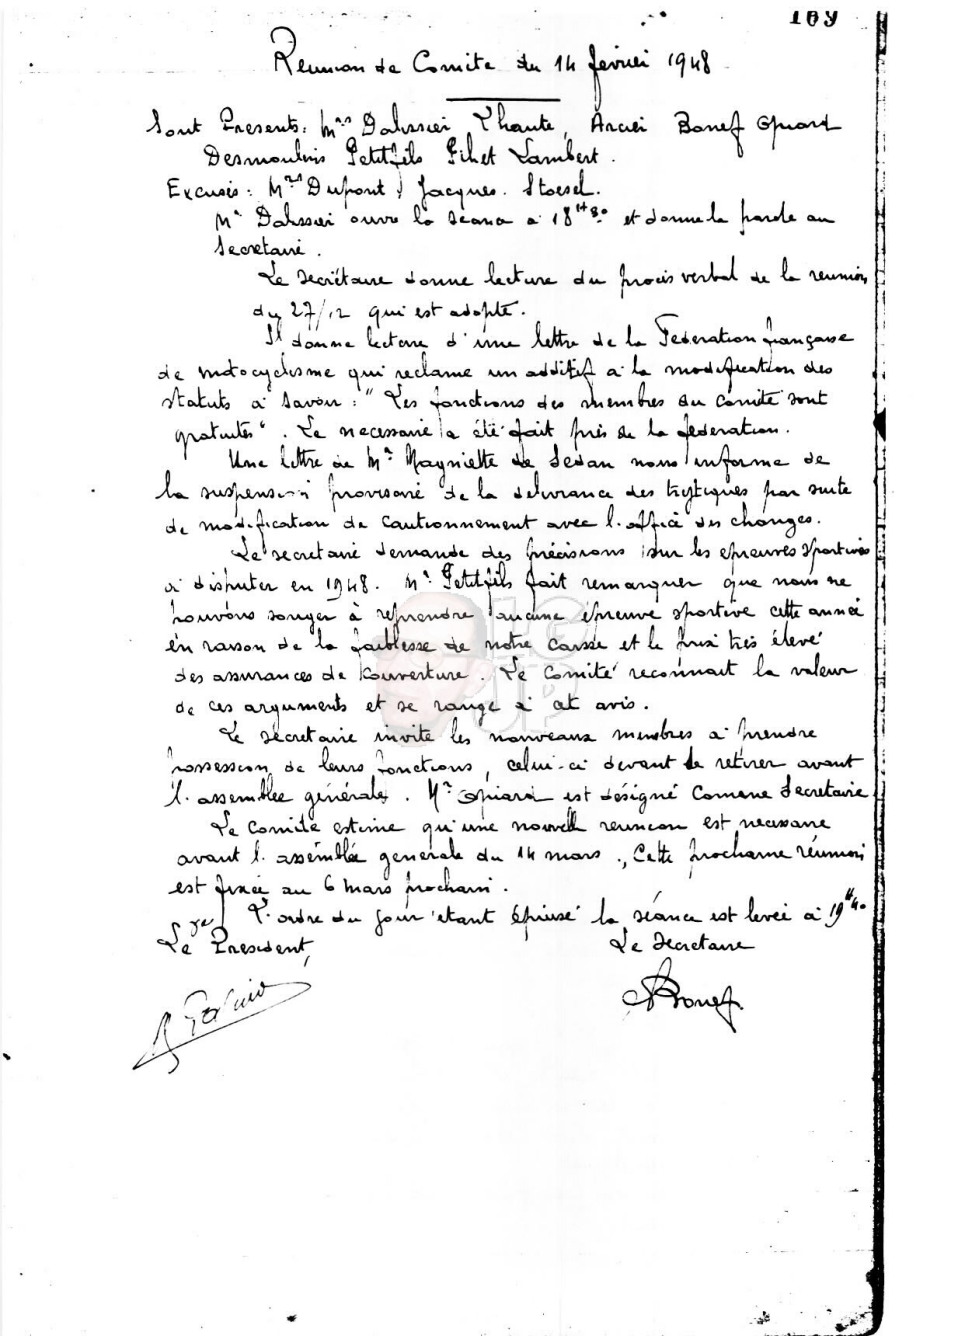 169
Réunion de Comité du 14 février 1948
Sont Presents: Mrs Dahssier Lhaute, Arcier Bonef Guiard
Desmoulins Petitfils Gilet Lambert.
Excusés: Mrs Dupont, Jacques. Stoesel.
Mr Dahssier ouvre la séance à 18H30 et donne la parole au
Secretaire.
Le secrétaire donne lecture du procès verbal de la reunion
du 27/12 qui est adopté.
Il donne lecture d'une lettre de la Federation française
de motocyclisme qui reclame un additif à la modification des
statuts à savoir: "Les fonctions des membres du Comité sont
gratuites". Le necessaire a été fait près de la federation.
Une lettre de Mr de Sedan nous informe de
la suspension provisoire de la delivrance des tryptiques par suite
de modification de cautionnement avec l'office des changes.
Le secretaire demande des précisions sur les epreuves sportives
à disputer en 1948. Mr Petitfils fait remarquer que nous ne
pouvons songer à reprendre aucune épreuve sportive cette année
en raison de la faiblesse de notre caisse et le prix très élevé
des assurances de couverture. Le Comité reconnait la valeur
de ces arguments et se range à cet avis.
Le secretaire invite les nouveaux membres à prendre
possession de leurs fonctions, celui-ci devant se retirer avant
l'assemblée générale. Mr Guiard est désigné comme Secretaire
Le Comité estime qu'une nouvelle reunion est necessaire
avant l'assemblée generale du 14 mars. Cette prochaine réunion
est fixée au 6 mars prochain.
L'ordre du jour étant épuisé la séance est levée à 19H40
Le Président,
Le Secretaire
Bonef
LG
JP